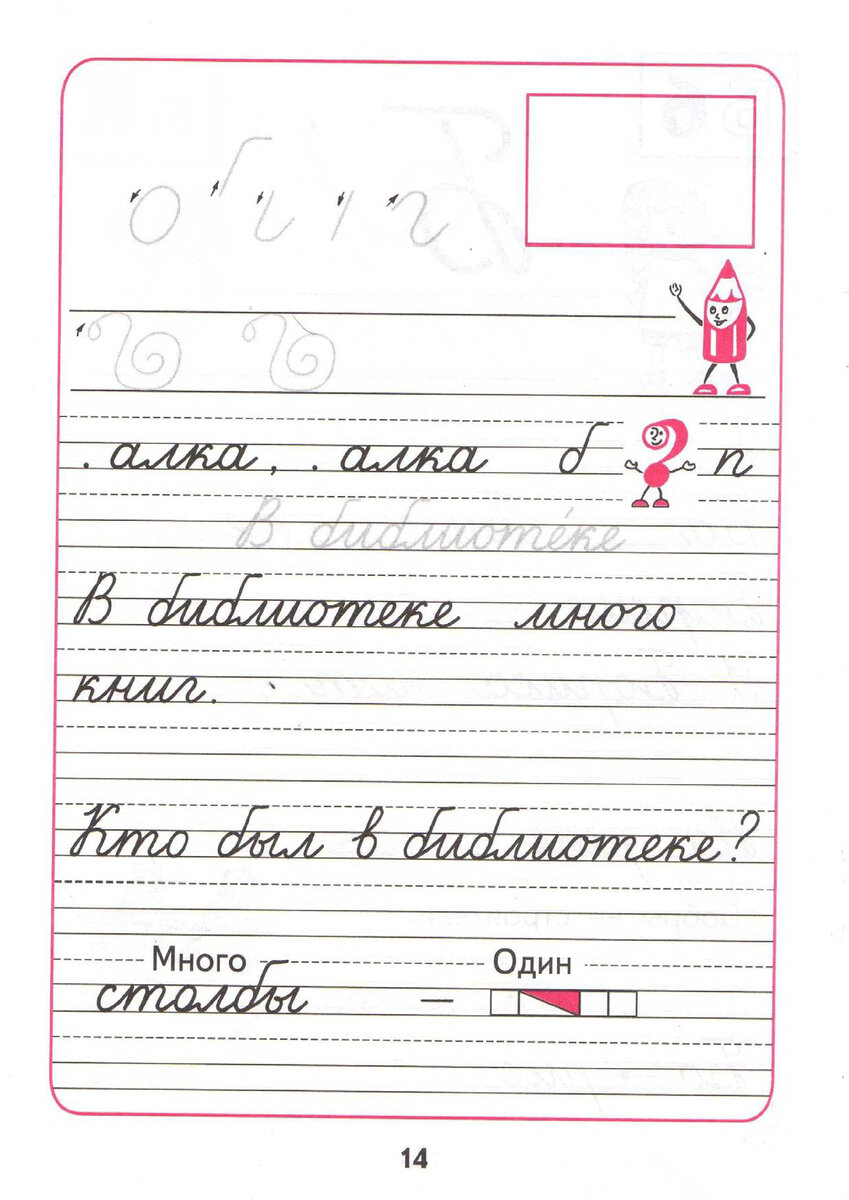 . алка, . алка б ? п
В библиоте́ке
В библиотеке много
книг.
Кто был в библиотеке?
Много Один
столбы –
14